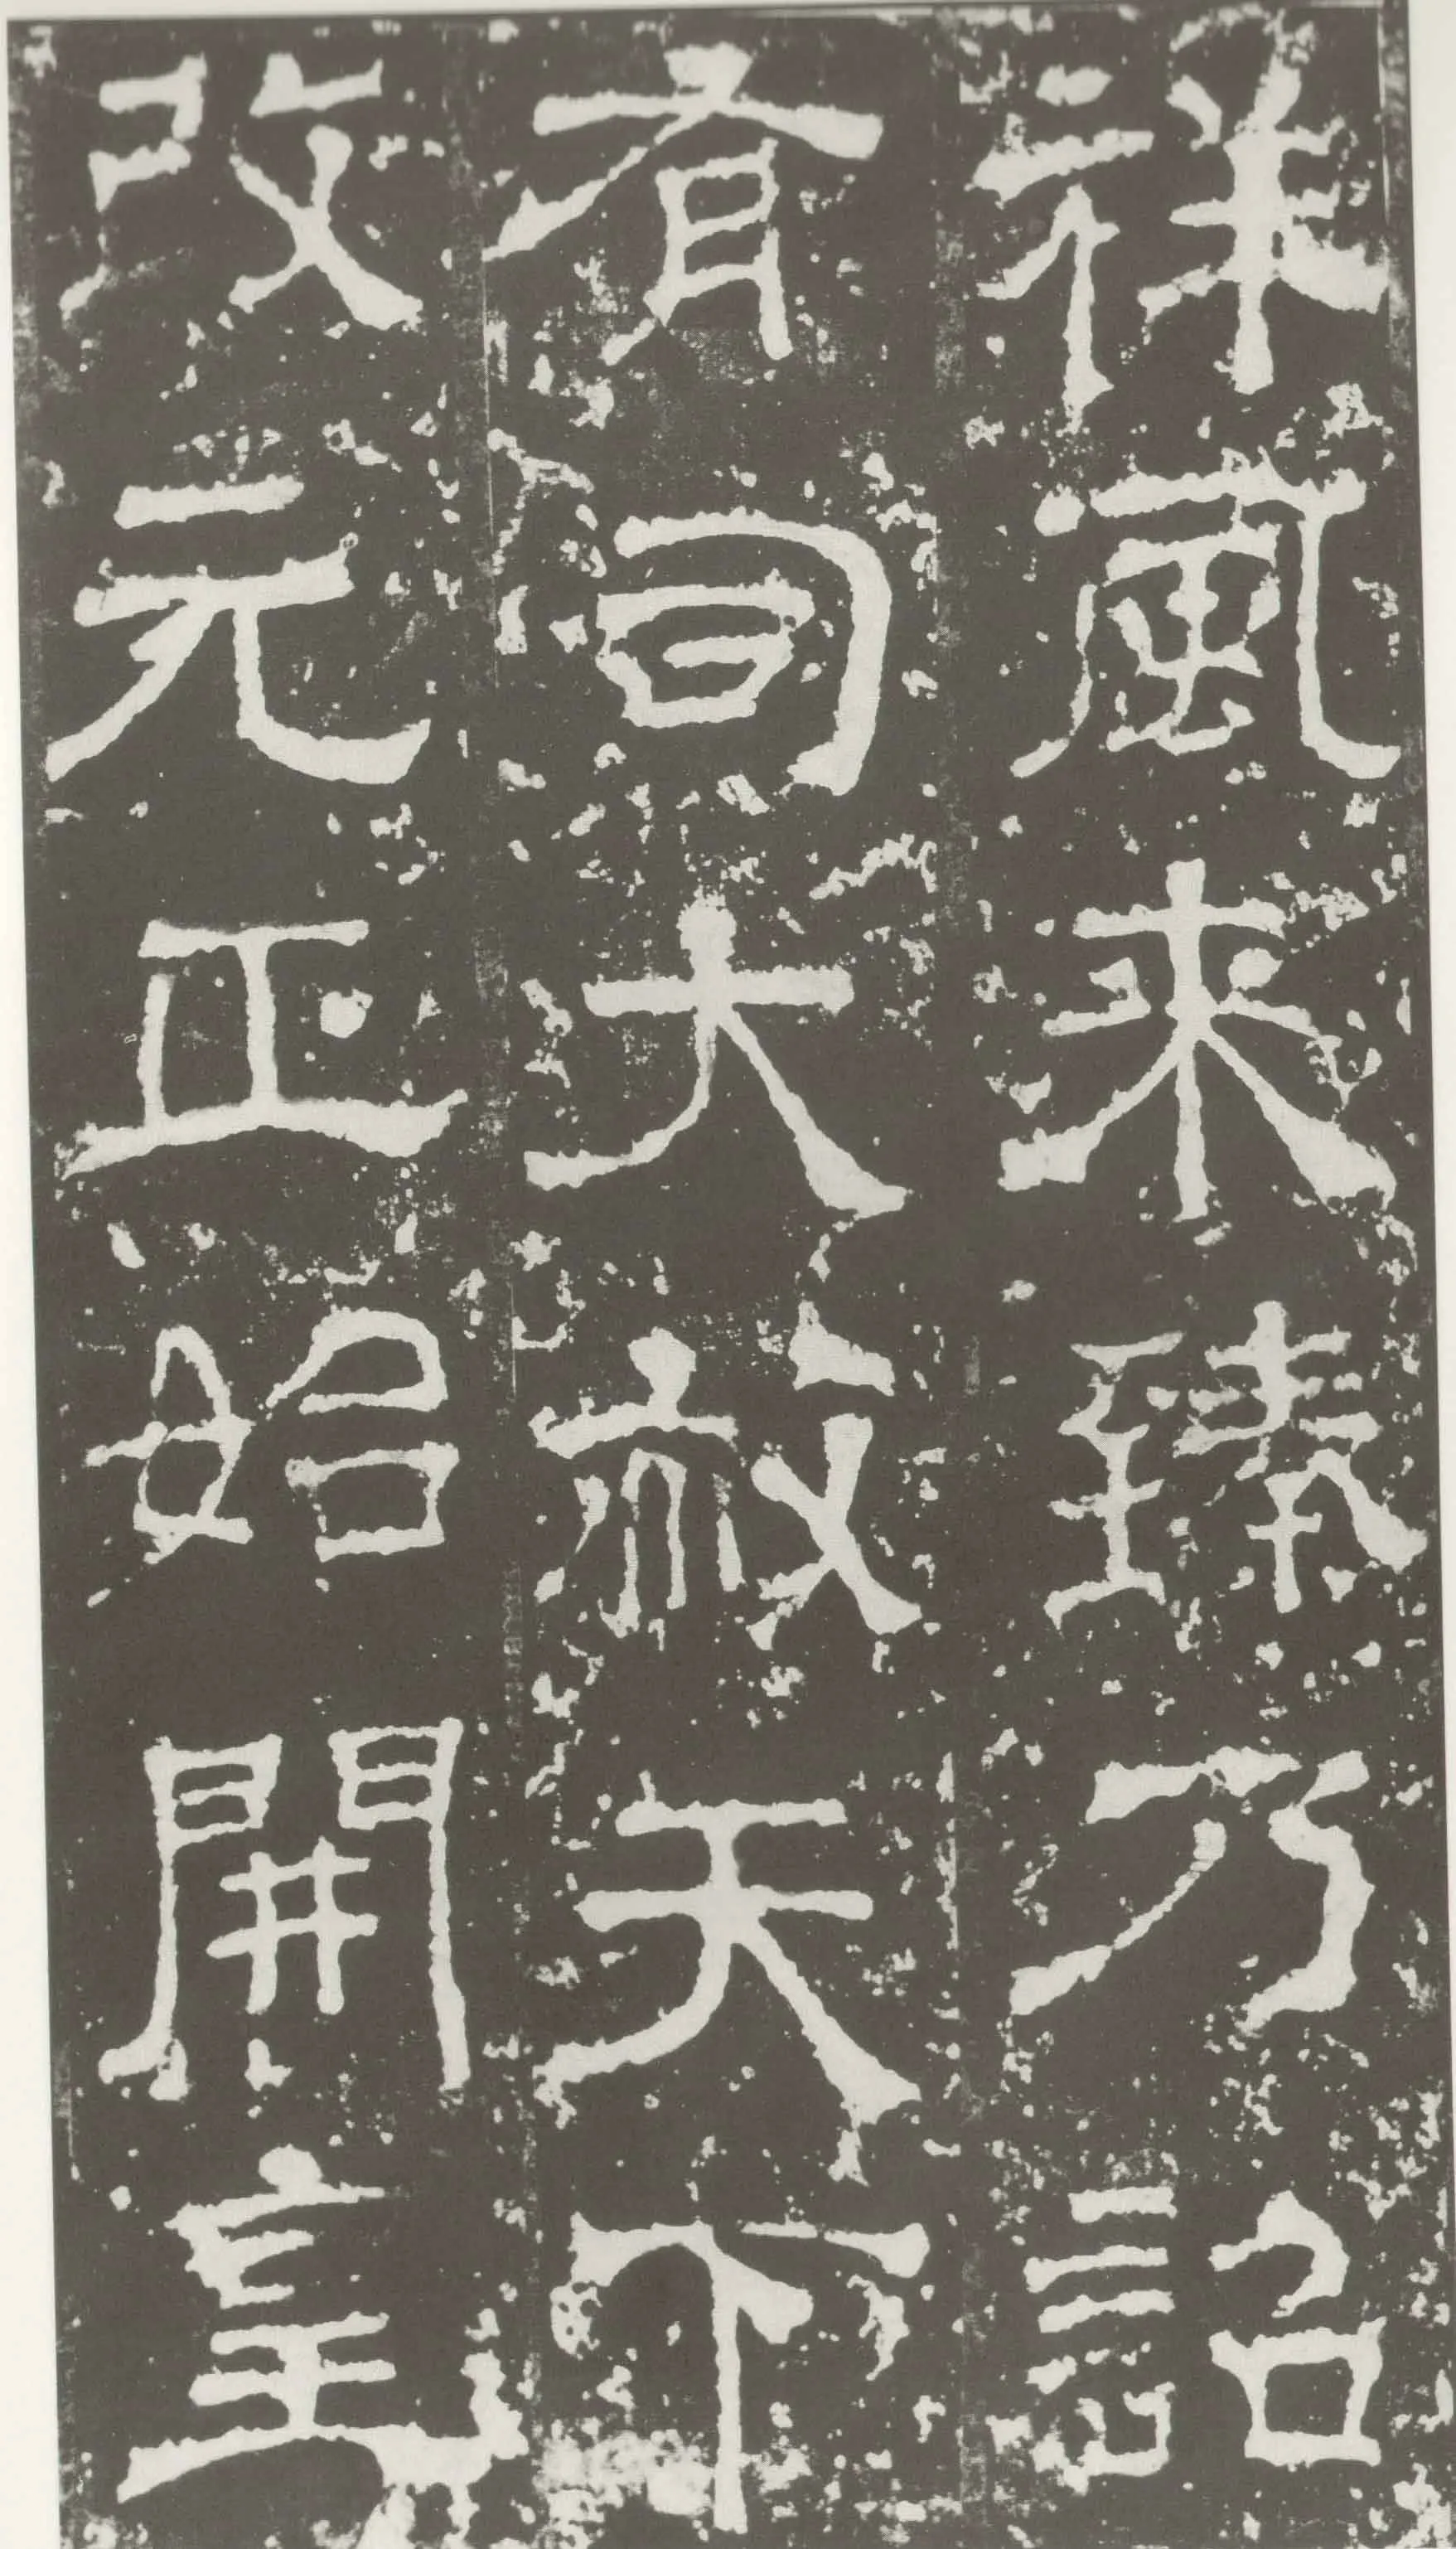 祥風來臻乃詔
有司大赦天下
改元正始開皇